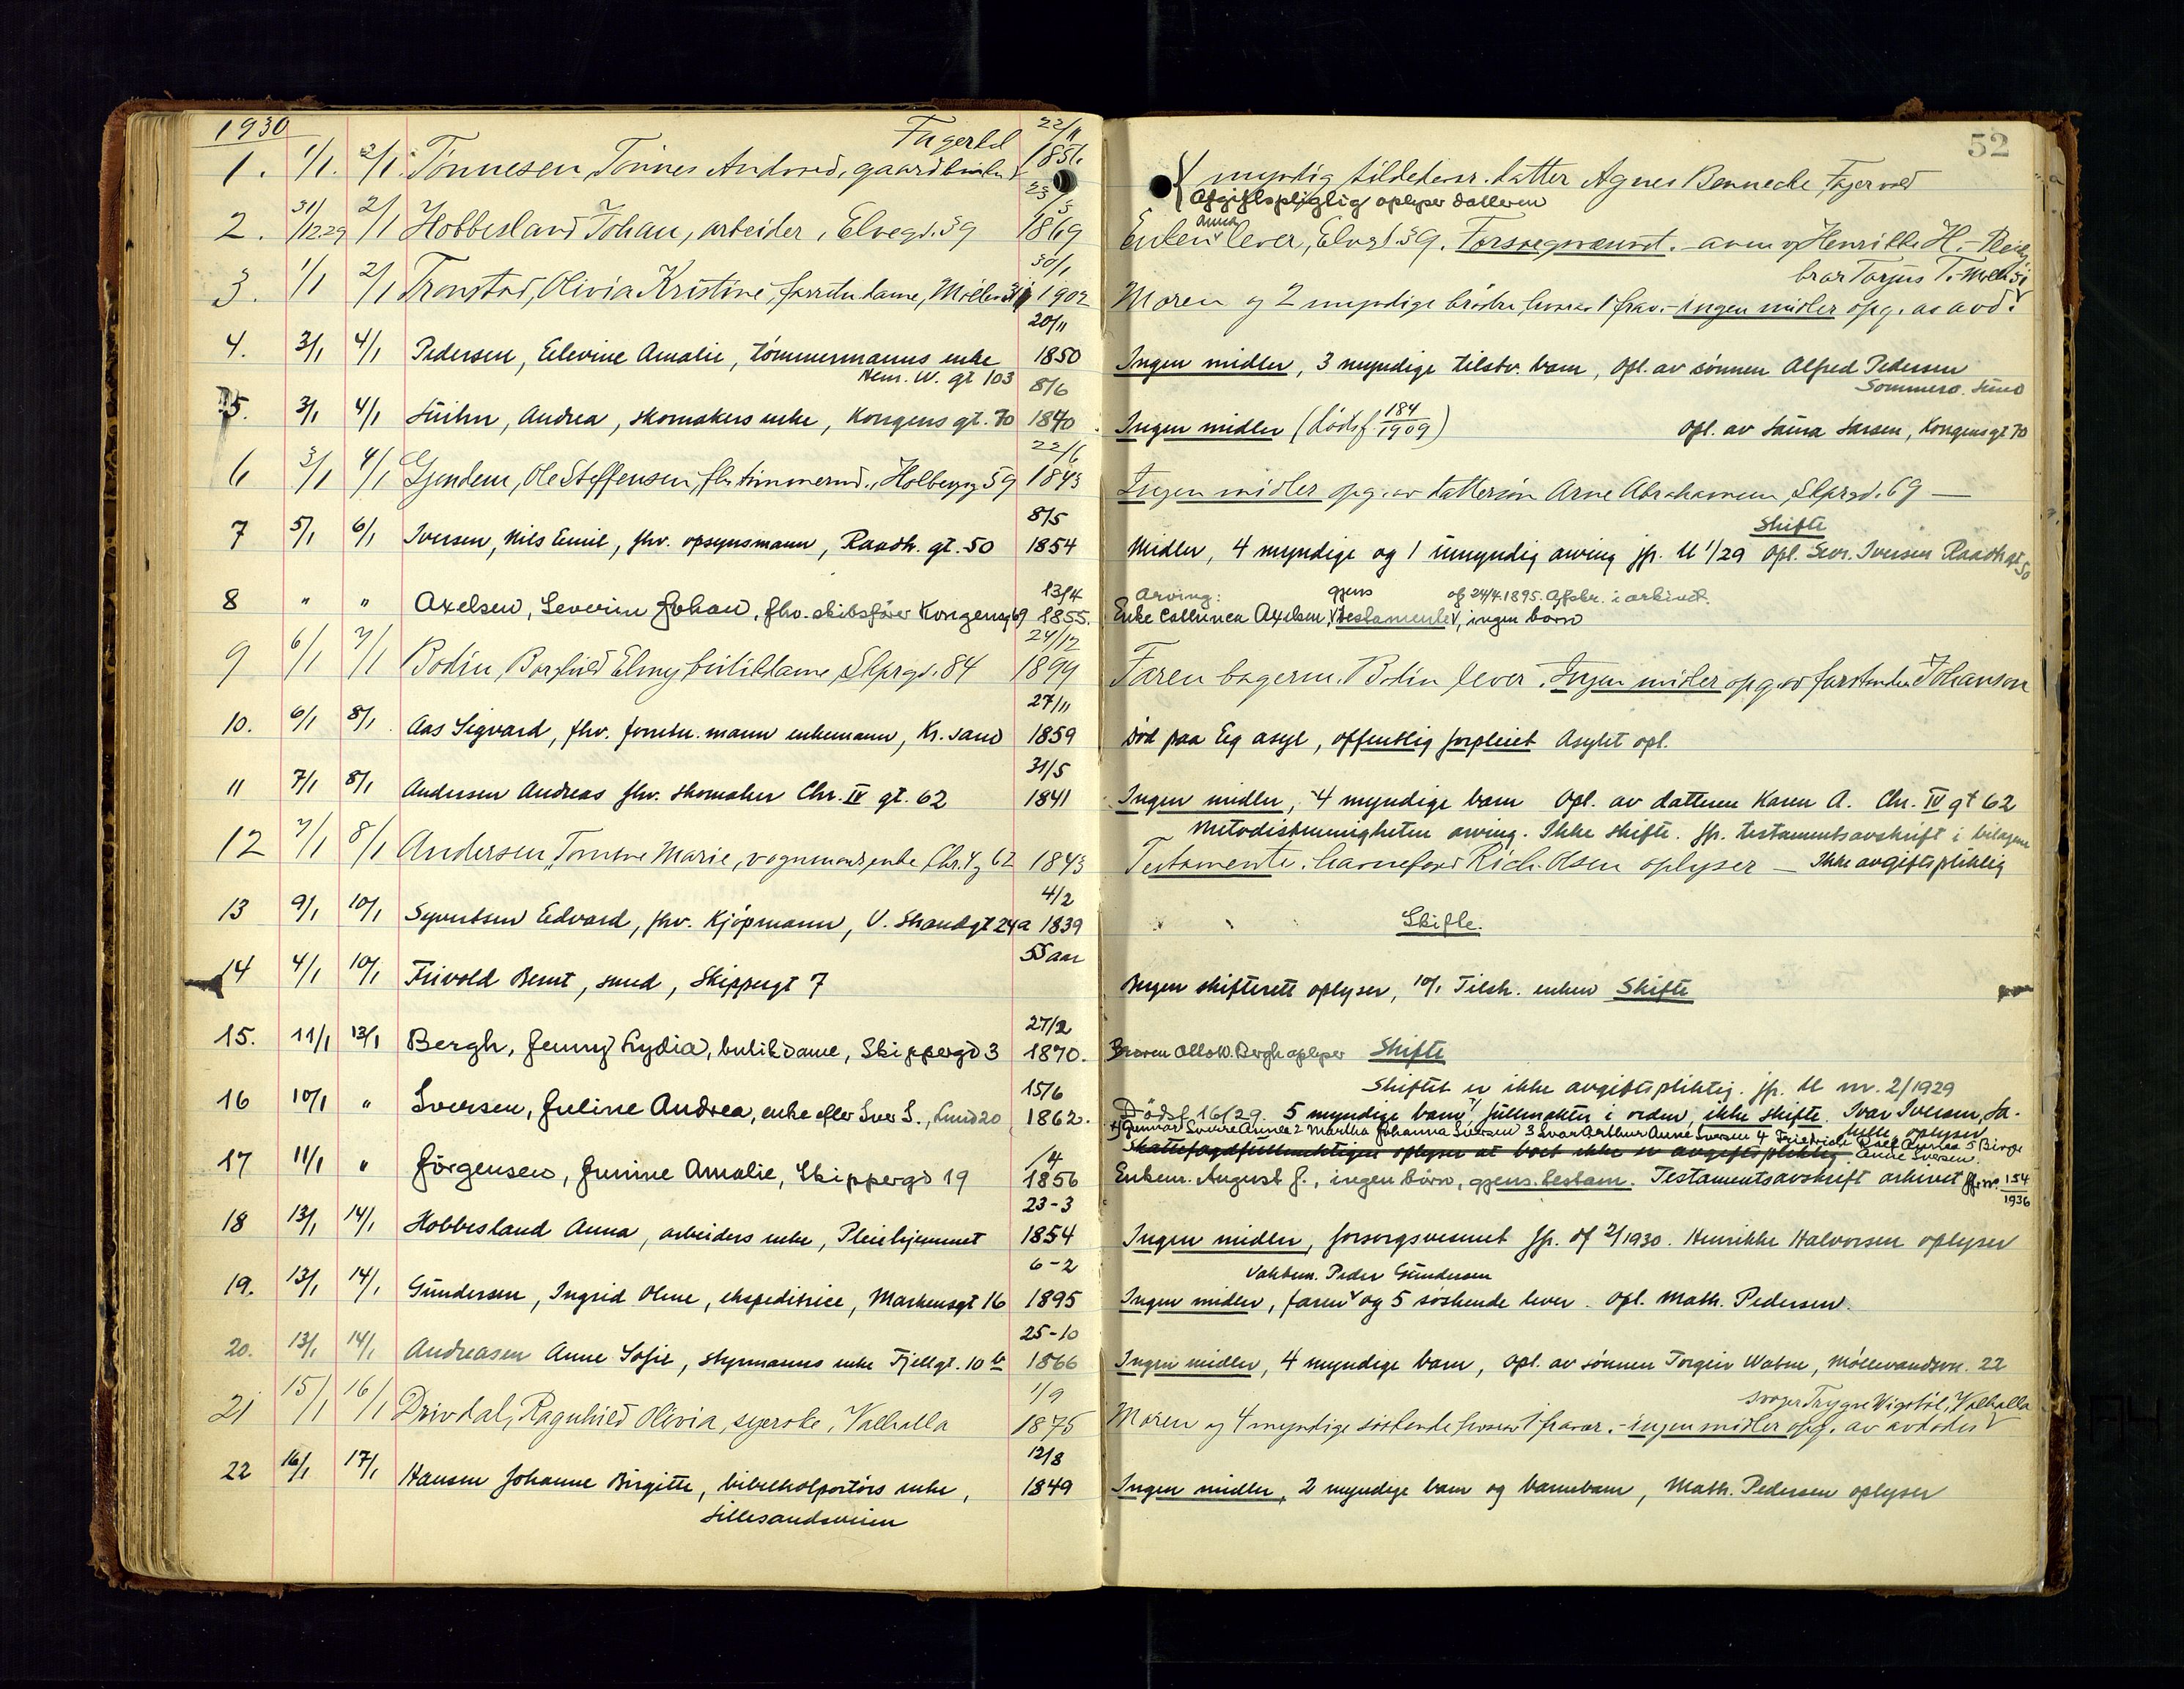 1930
52
Fagervol 22/11
1. 1/1. 2/1. Tønnesen, Tønnes Andreas, gaardbruker 1851.
myndig tilstedevær. datter Agnes Bennecke, Fagervold
Afgiftspligtig oplyser datteren
2. 31/12.29 2/1 Hobbesland Johan, arbeider, Elvegd. 59 1869
Enken Anna lever, Elvegt 59. Forsorgsvæsnet. anm. v/ Henrikke H. - Pleieh
3. 1/1 2/1 Tronstad, Olivia Kristine, forretn. dame, Møllev 30/1 1902
bror Torjus T. - Møllev 51
Moren og 2 myndige brødre, hvorav 1 frav. - ingen midler opg. av avd.
4. 3/1 4/1 Pedersen, Eelevine Amalie, tømmermanns enke 20/11 1850
Hen. W. gt 103
Ingen midler, 3 myndige tilstv. barn, Opl. av sønnen Alfred Pedersen
Sommero. Lund
5. 3/1 4/1 Luihn, Andrea, skomakers enke, Kongens gt. 70 8/6 1840
Ingen midler (Dødsf 184/1909) Opl. av Laura Larsen, Kongensgt 70
6 3/1 4/1 Gjendem, Ole Steffensen, fhv tømmermd., Holbergg 59 22/6 1843
Ingen midler opg. av dattersøn Arne Abrahamsen, Skprgd. 69 —
7 5/1 6/1 Iversen, Nils Emil, fhv. opsynsmann, Raadh. gt. 50 8/5 1854
Skifte
Midler, 4 myndige og 1 umyndig arving jfr. U 1/29 Opl. Sevr. Iversen Raadhgt 50
8 " " Axelsen, Severin Johan, fhv. skibsfører Kongensg 69 13/4 1855.
Arving: gjens af 24/4.1895. Afskr. i arkivet.
Enke Cathinca Axelsen, testamente, ingen børn
9 6/1 7/1 Bodin, Borghild Elmy, butikdame, Skprgd. 84 24/12 1899
Faren bagerm. Bodin lever. Ingen midler opg. av forstander Johanson
10. 6/1 8/1 Aas Sigvard, fhv. forretn. mann enkemann, Kr. sand 27/11 1859
Død paa Eg asyl, offentlig forpleiet Asylet opl.
11 7/1 8/1 Andersen Andreas fhv. skomaker Chr. IV gt. 62 31/5 1841
Ingen midler, 4 myndige barn Opl. av datteren Karen A. Chr. IV gt 62
Metodistmenigheten arving. Ikke skifte. Jfr. testamentsavskrift i bilagene
12 7/1 8/1 Andersen, Tomine Marie, vognmands enke, Chr. 4 g 62 1843
Testamente. havnefogd Rich. Olsen oplyser — Ikke avgiftspliktig
13 9/1 10/1 Syvertsen Edvard, fhv. Kjøpmann, V. Strandgt 24a 4/2 1839
Skifte.
14 4/1 10/1 Frivold Bernt, smed, Skippergt 7 55 aar
Bergen skifterett oplyser, 10/1 Tilsk. enken Skifte
15. 11/1 13/1 Bergh, Jenny Lydia, butikdame, Skippergd 3 27/2 1870.
Broren Otto W. Bergh oplyser Skifte
Skiftet er ikke avgiftspliktig. jfr. U nr. 2/1929
16 10/1 " Iversen, Juline Andrea, enke efter Iver I., Lund 20 15/6 1862.
Dødsf 16/29. 5 myndige barn fullmakter i orden, ikke skifte. Ivar Iversen, oplyser
x) Gunnar Sverre Annæ 2 Martha Johanna Iversen 3 Ivar Arthur Anne Iversen 4 Friedrich Rolf Annæ 5 Birge Anne Iversen.
Skattefogdfullmektigen oplyser at boet ikke er avgiftspliktig
17 11/1 " Jörgensen, Junine Amalie, Skippergd 19 /4 1856
Enkem. August J., ingen børn, gjens. testam. Testamentsavskrift arkivet jfr. nr. 154/1936
18 13/1 14/1 Hobbesland Anna, arbeiders enke, Pleiehjemmet 23-3 1854
Ingen midler, forsorgsvesenet jfr. df 2/1930. Henrikke Halvorsen oplyser
19. 13/1 14/1 Gundersen, Ingrid Oline, ekspeditrice, Markensgt 16 6-2 1895
Vaktm. Peder Gundersen
Ingen midler, faren og 5 søskende lever. Opl. Math. Pedersen.
20. 13/1 14/1 Andreasen Anne Sofie, styrmanns enke Fjellgt. 10 b 25-10 1866
Ingen midler, 4 myndige barn, Opl. av sønnen Torgeir Watne, Møllevandsvn. 22
21 15/1 16/1 Drivdal, Ragnhild Olivia, syerske, Valhalla 1/9 1875
svoger Trygve Vigstöl, Valhalla
Moren og 4 myndige søskende hvorav 1 fravær. - ingen midler opg. av avdødes
22 16/1 17/1 Hansen Johanne Birgitte, bibelkolportørs enke, 12/8 1849
Lillesandsveien
Ingen midler, 2 myndige barn og barnebarn, Math. Pedersen oplyser